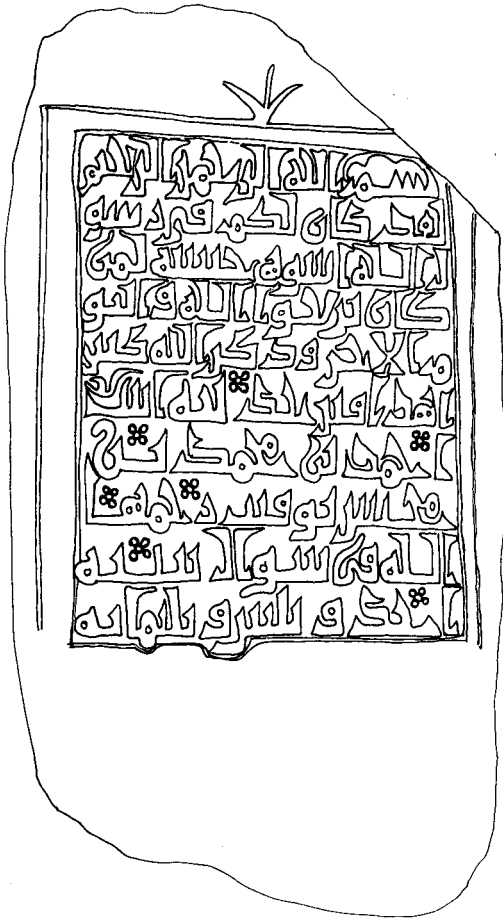 بسم الله الرحمن الرحيم
لقد كان لكم في رسو
ل الله اسوة حسنة لمن
كان يرجوا الله واليو
م الاخر وذكر الله كثير
ا هذا قبر
احمد بن محمد بن
توفيت رحمها
الله في شوال سنة
احدى و